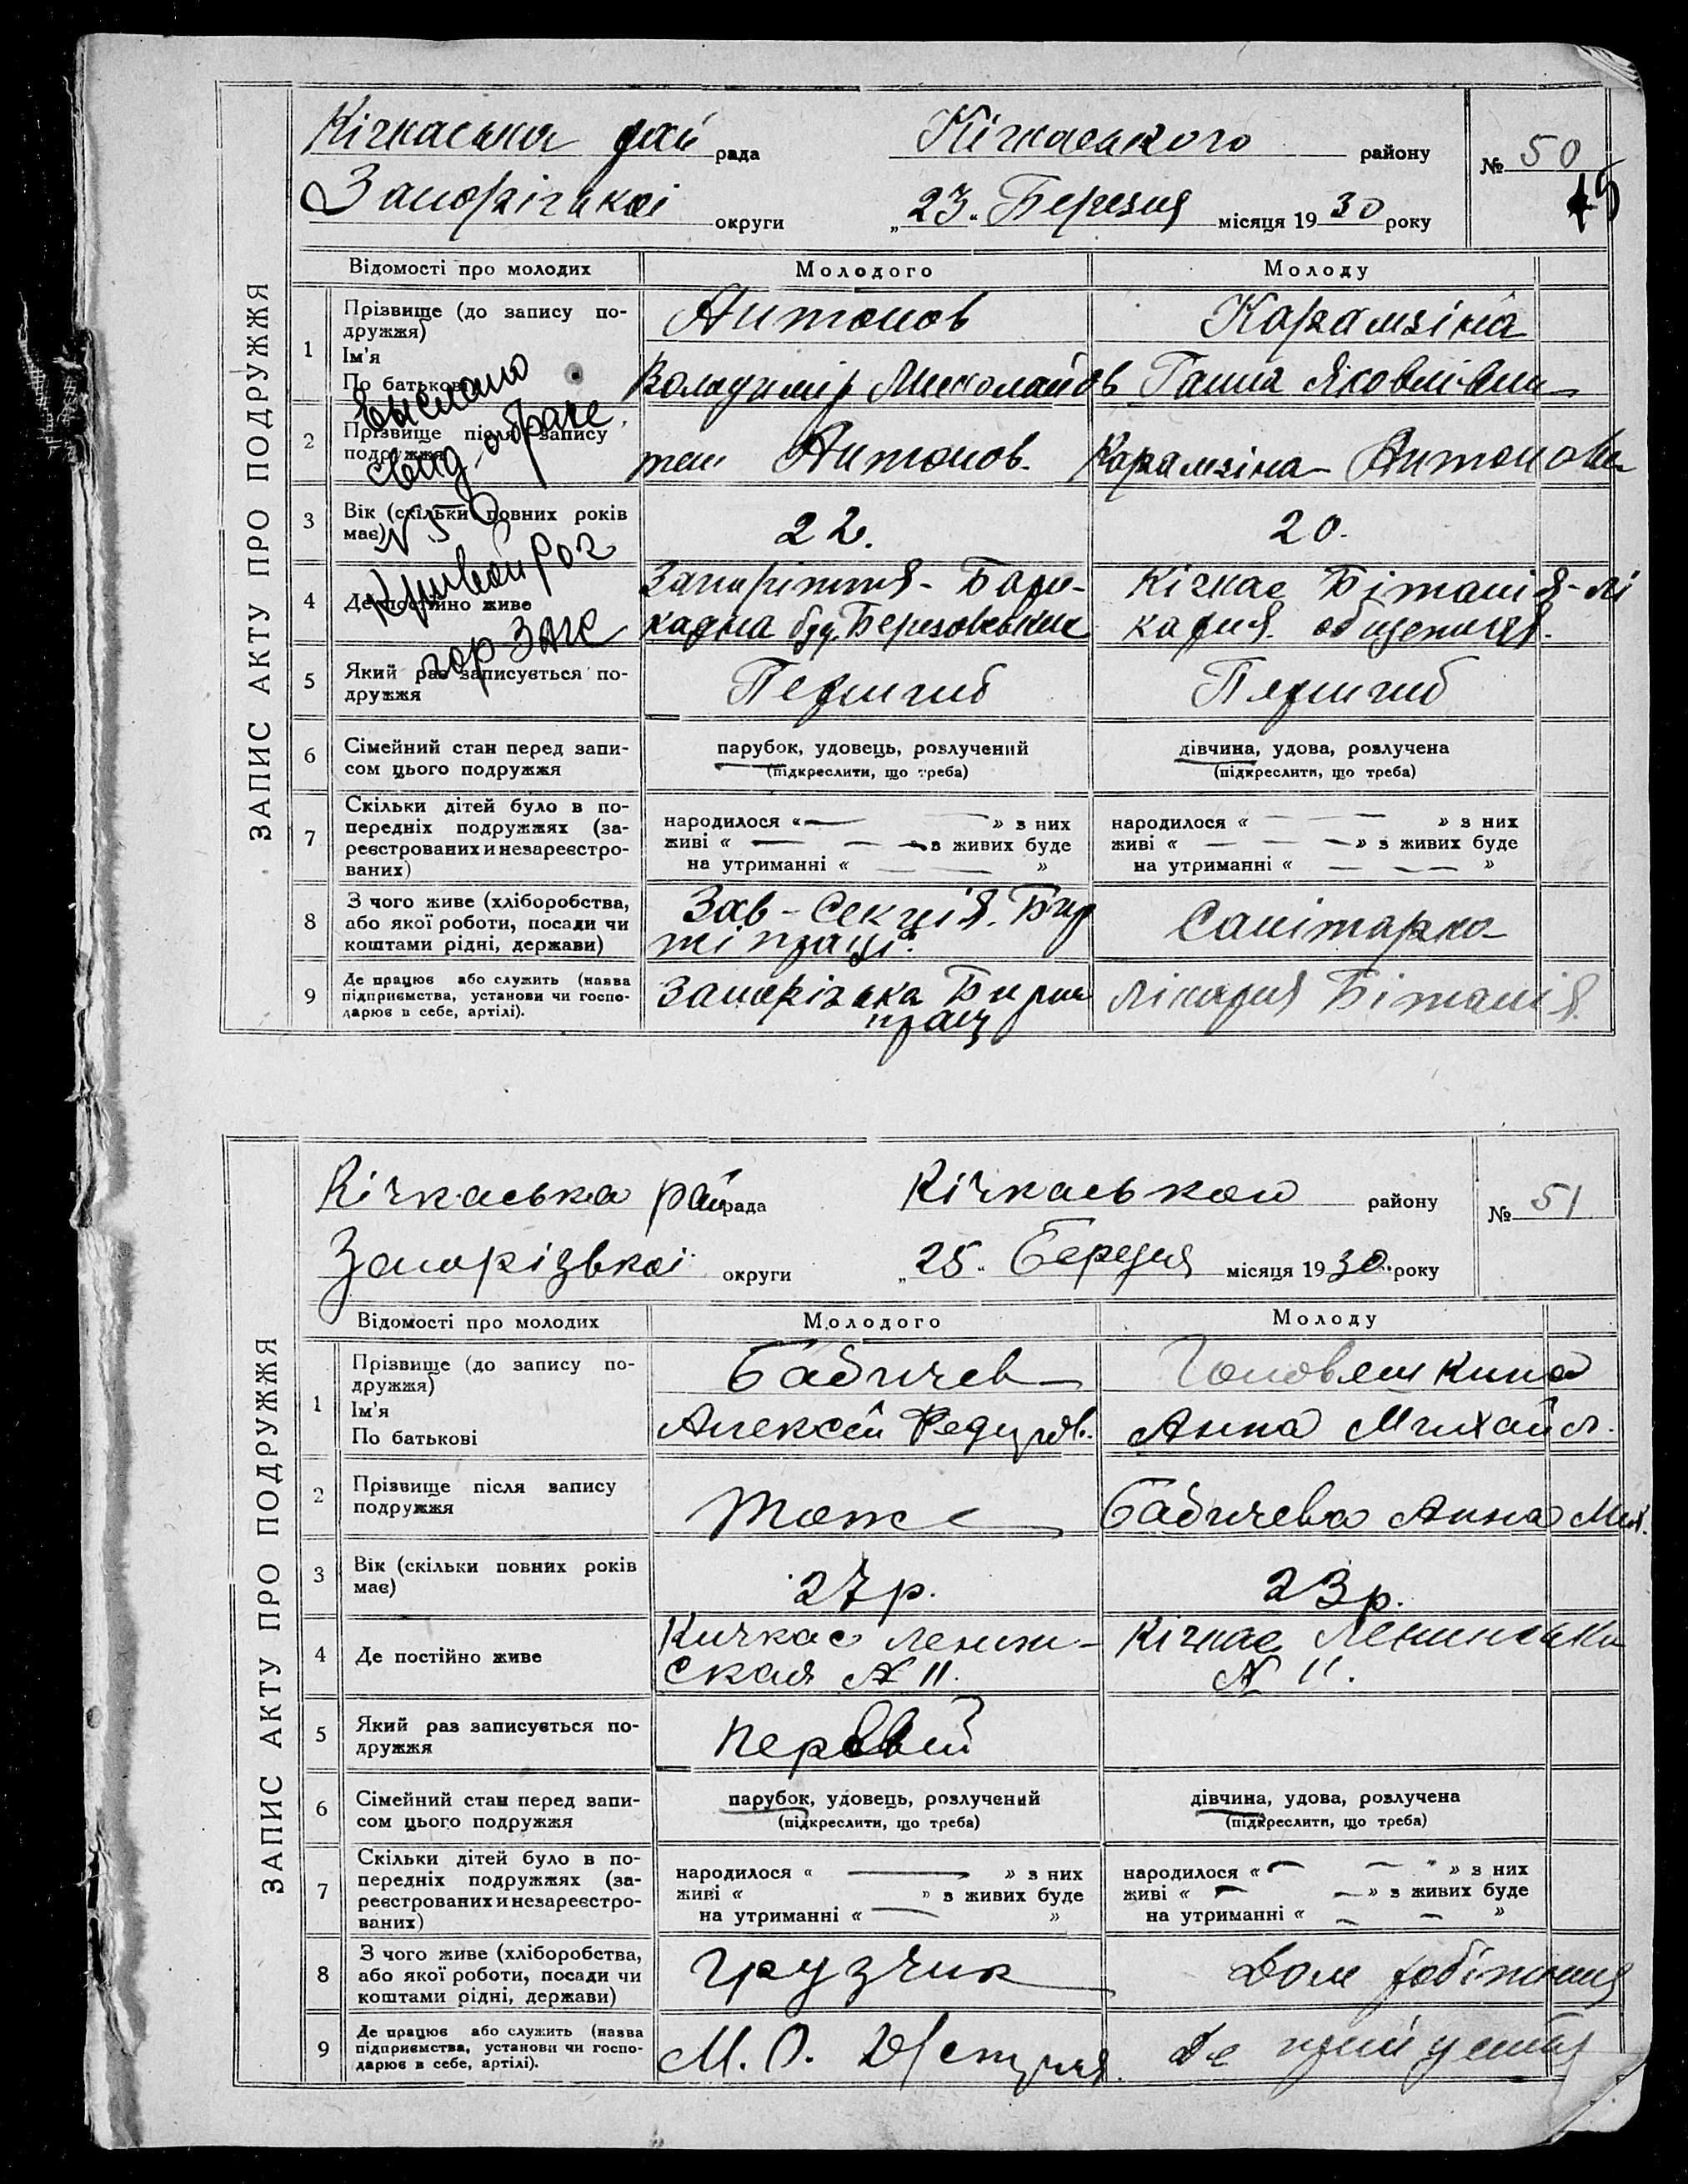 ЗАПИС АКТУ ПРО ПОДРУЖЖЯ
Кічкаська рай рада Кічкаського району № 50
45
Запорізькоі округи „23“ Березня місяця 1930 року
Відомості про молодих Молодого Молоду
1 Прізвище (до запису подружжя) Антонов Карамзіна
Ім'я
По батькові Володимір Миколайов Ганна Яковлівна
2 Прізвище після запису подружжя Антонов. Карамзіна-Антонова
3 Вік (скільки повних років має) 22. 20.
4 Де постійно живе Запоріжжя - Бари- Кічкас Бітанія - лі
кадна буд. карня. общежиття.
5 Який раз записується подружжя Першиб Першиб
6 Сімейний стан перед записом цього подружжя парубок, удовець, розлучений дівчина, удова, розлучена
(підкреслити, що треба) (підкреслити, що треба)
7 Скільки дітей було в попередніх подружжях (зареєстрованих и незареєстрованих)
народилося « — — » з них народилося « — — — » з них
живі « — — — » з живих буде живі « — — — » з живих буде
на утриманні « — — » на утриманні « — — — »
8 З чого живе (хліборобства, або якої роботи, посади чи коштами рідні, держави) Зав-Секція. Бир Санітарка
жі праці.
9 Де працює або служить (назва підприємства, установи чи господарює в себе, артілі). Запорізька Биржа Лікарня Бітанія.
праці
Выслано
свид. о браке
N 50
Кривой Рог
гор ЗАГС
ЗАПИС АКТУ ПРО ПОДРУЖЖЯ
Кічкаська рай рада Кічкаськой району № 51
Запорізькоі округи „25“ Березня місяця 1930. року
Відомості про молодих Молодого Молоду
1 Прізвище (до запису подружжя) Бабичев Головяшкина
Ім'я
По батькові Алексей Федоров. Анна Михайл.
2 Прізвище після запису подружжя Тоже Бабичева Анна Мих.
3 Вік (скільки повних років має) 27р. 23р.
4 Де постійно живе Кичкас Ленин- Кічкас Ленинська
ская N 11. N 11.
5 Який раз записується подружжя первый
6 Сімейний стан перед записом цього подружжя парубок, удовець, розлучений дівчина, удова, розлучена
(підкреслити, що треба) (підкреслити, що треба)
7 Скільки дітей було в попередніх подружжях (зареєстрованих и незареєстрованих)
народилося « — » з них народилося « — — » з них
живі « » з живих буде живі « — — » з живих буде
на утриманні « — » на утриманні « — — »
8 З чого живе (хліборобства, або якої роботи, посади чи коштами рідні, держави) грузчик Дом робітниця
9 Де працює або служить (назва підприємства, установи чи господарює в себе, артілі). М. О.